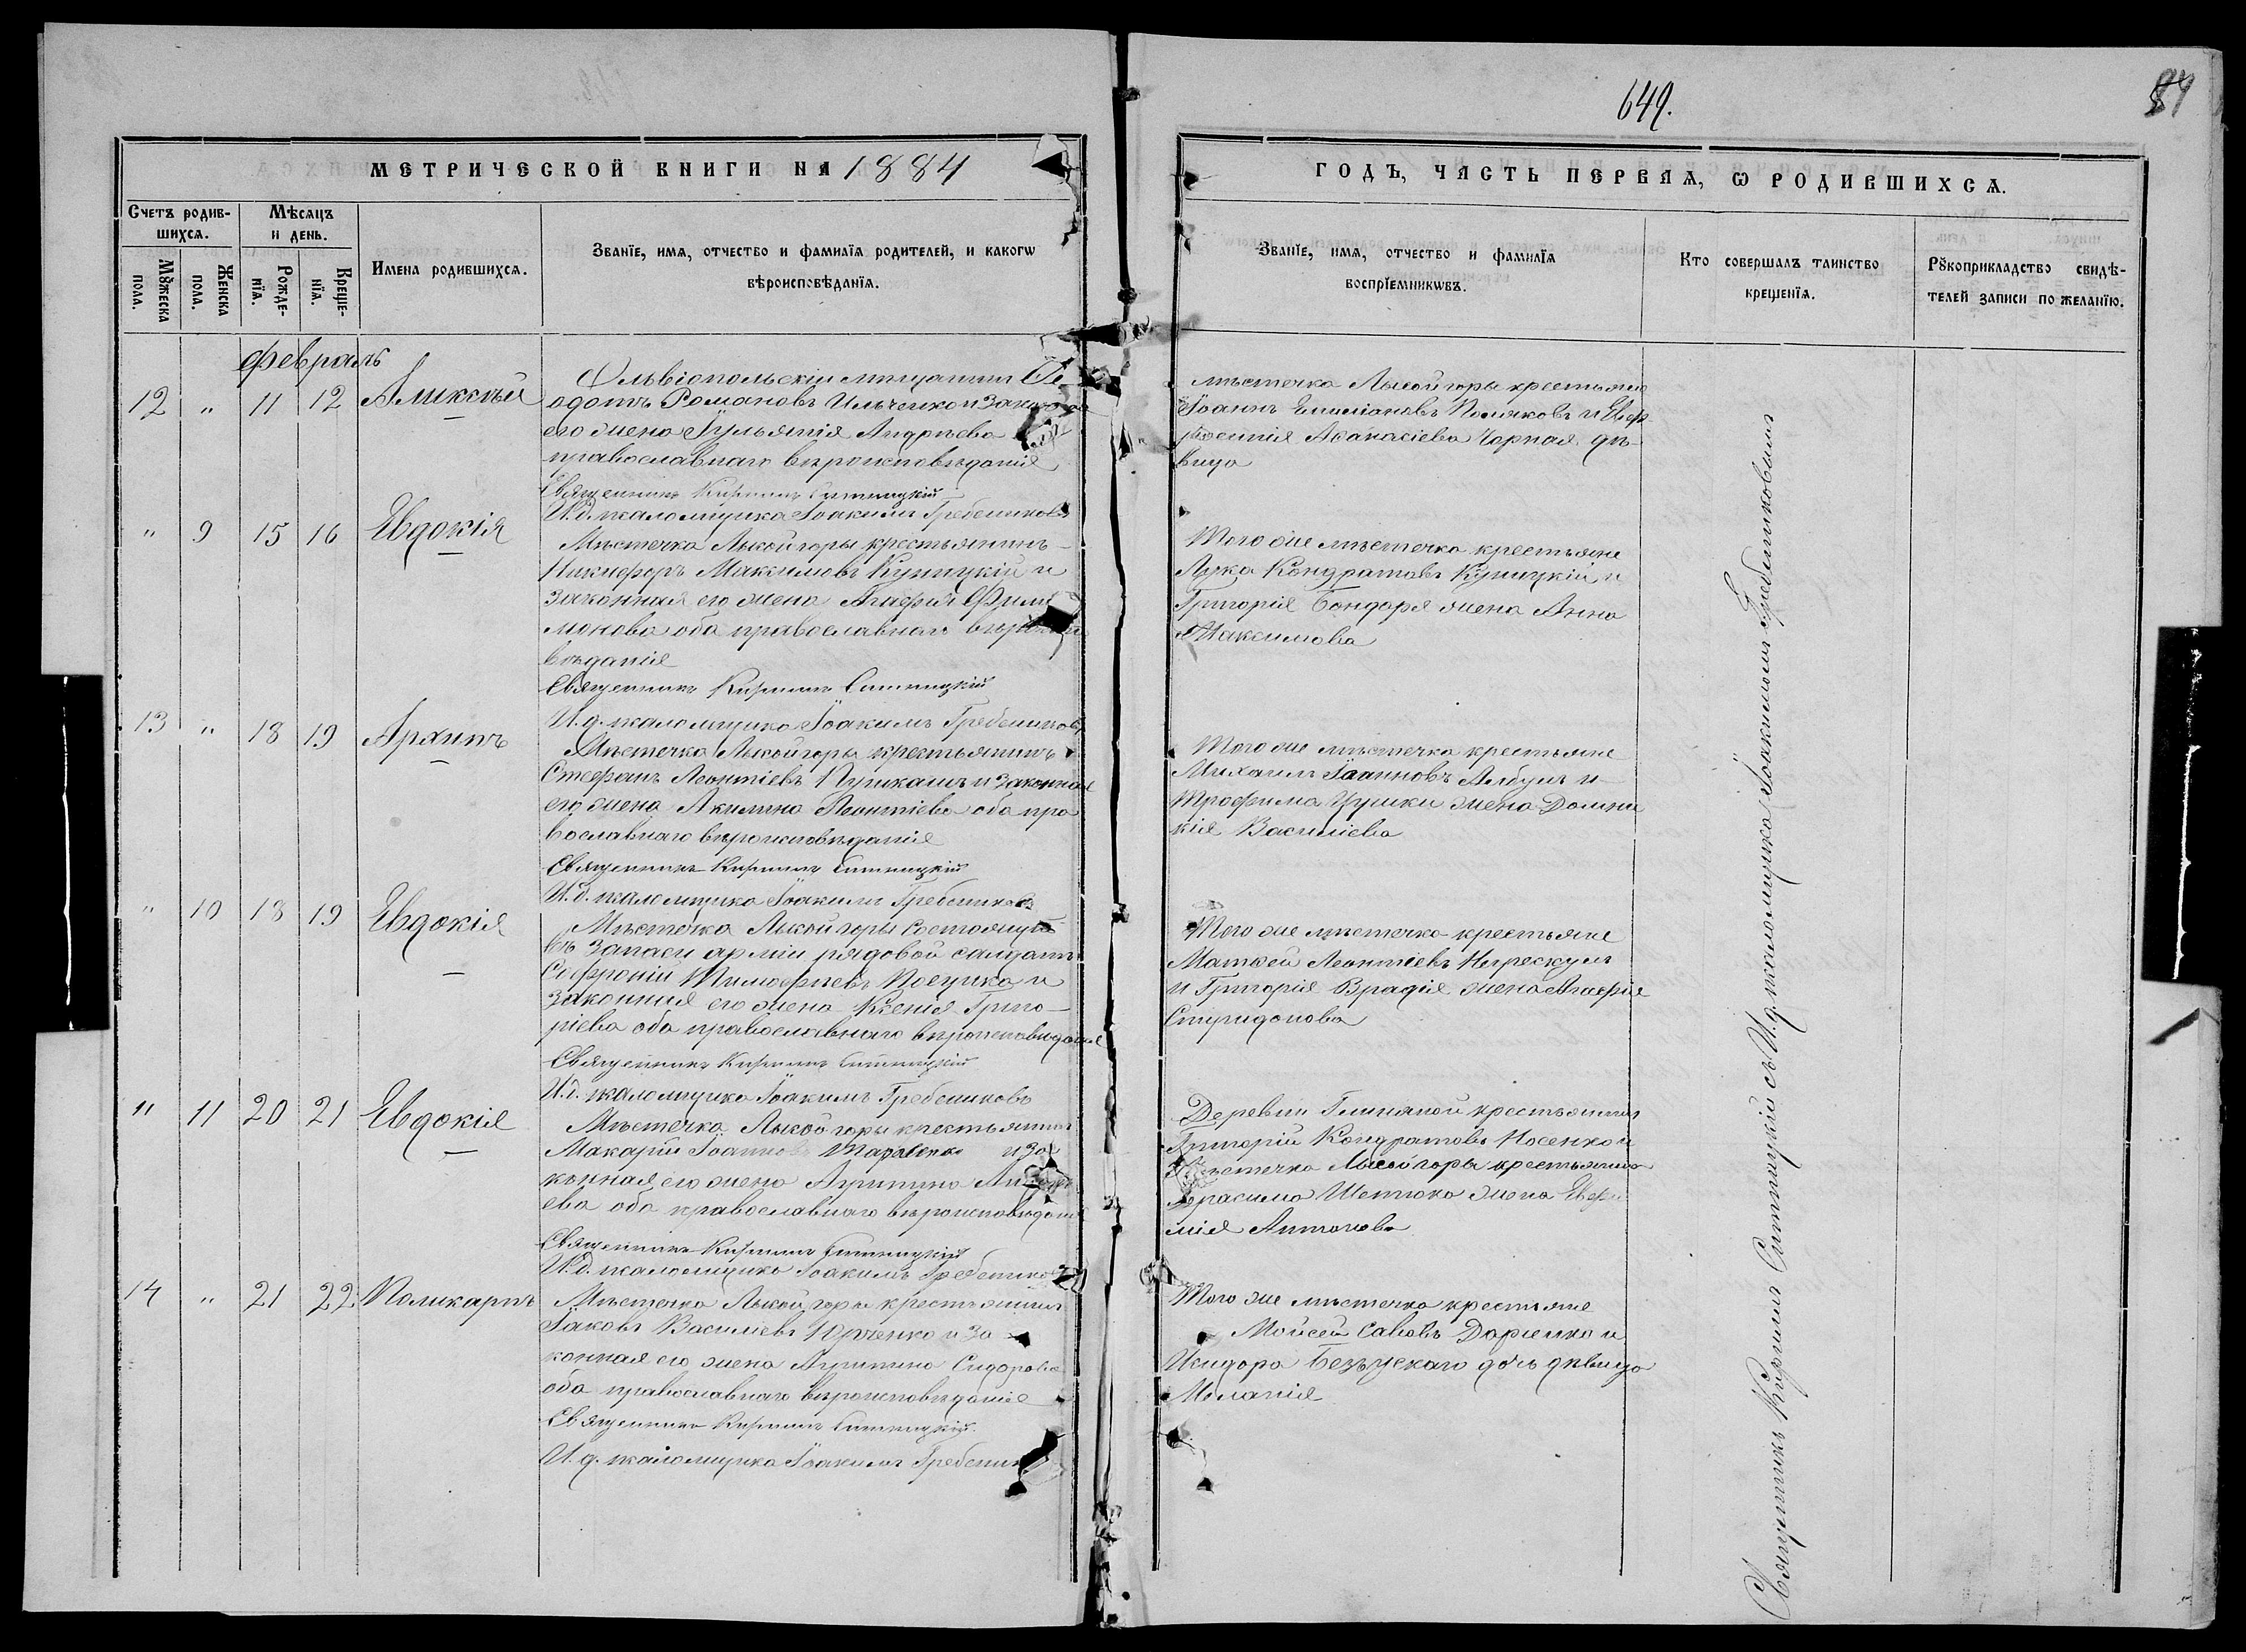 649.
84
МЕТРИЧЕСКОЙ КНИГИ НА 1884
ГОДЪ, ЧАСТЬ ПЕРВАЯ, Ѡ РОДИВШИХСЯ.
Счетъ родив-
шихся.
Мѣсяцъ
и день.
Мꙋжеска
пола.
Женска
пола.
Рожде-
нїя.
Креще-
нїя.
Имена родившихся.
Званїе, имя, отчество и фамилїя родителей, и какогѡ
вѣроисповѣданїя.
Званїе, имя, отчество и фамилїя
воспрїемникѡвъ.
Кто совершалъ таинство
крещенїя.
Рꙋкоприкладство свидѣ-
телей записи по желанїю.
Февраль
12 " 11 12 Алексѣй
Ольвіопольскій мѣщанинъ Ѳе-
одотъ Романовъ Ильченко и законная
его жена Іульянія Андреева
православнаго вѣроисповѣданія
Священникъ Кириллъ Ситницкій
И.д. псаломщика Іоакимъ Гребениковъ
мѣстечка Лысой горы крестьяне
Іоаннъ Емиліановъ Поляковъ и Евф
росинія Аѳанасіева Чорная дѣ-
вица
" 9 15 16 Евдокія
Мѣстечка Лысой горы крестьянинъ
Никифоръ Максимовъ Куницкій и
законная его жена Агафія Фили
монова оба православнаго вѣроиспо
вѣданія
Священникъ Кириллъ Ситницкій
И.д. псаломщика Іоакимъ Гребениковъ
Того же мѣстечка крестьяне
Лука Кондратовъ Куницкій и
Григорія Бондаря жена Анна
Максимова
13 " 18 19 Архипъ
Мѣстечка Лысой горы крестьянинъ
Стефанъ Леонтіевъ Пушкашъ и законная
его жена Акилина Леонтіева оба пра
вославнаго вѣроисповѣданія
Священникъ Кириллъ Ситницкій
И.д. псаломщика Іоакимъ Гребениковъ
Того же мѣстечка крестьяне
Михаилъ Іоанновъ Албулъ и
Трофима Цушки жена Домни
кія Василіева
" 10 18 19 Евдокія
Мѣстечка Лысой горы состоящій
въ запасѣ арміи рядовой салдатъ
Софроній Тимофѣевъ и
законная его жена Ксенія Григо-
ріева оба православнаго вѣроисповѣданія
Священникъ Кириллъ Ситницкій
И.д. псаломщика Іоакимъ Гребениковъ
Того же мѣстечка крестьяне
Матѳей Леонтіевъ
и Григорія Врадія жена Агафія
Спиридонова
" 11 20 21 Евдокія
Мѣстечка Лысой горы крестьянинъ
Макарій Іоанновъ Тараненко и за
конная его жена Агрипина
ева оба православнаго вѣроисповѣданія
Священникъ Кириллъ Ситницкій
И.д. псаломщика Іоакимъ Гребениковъ
Деревни Глиняной крестьянинъ
Григорій Кондратовъ Носенко и
мѣстечка Лысой горы крестьянина
Герасима жена Евфи
мія Антонова
14 " 21 22 Поликарпъ
Мѣстечка Лысой горы крестьянинъ
Іаковъ Василіевъ Юрченко и за
конная его жена Агрипина Сидорова
оба православнаго вѣроисповѣданія
Священникъ Кириллъ Ситницкій
И.д. псаломщика Іоакимъ Гребеник
Того же мѣстечка крестьяне
Мойсей Савовъ Даріенко и
Исидора дочь дѣвица
Меланія
Священникъ Кириллъ Ситницкій съ И.д. псаломщика Іоакимомъ Гребениковымъ